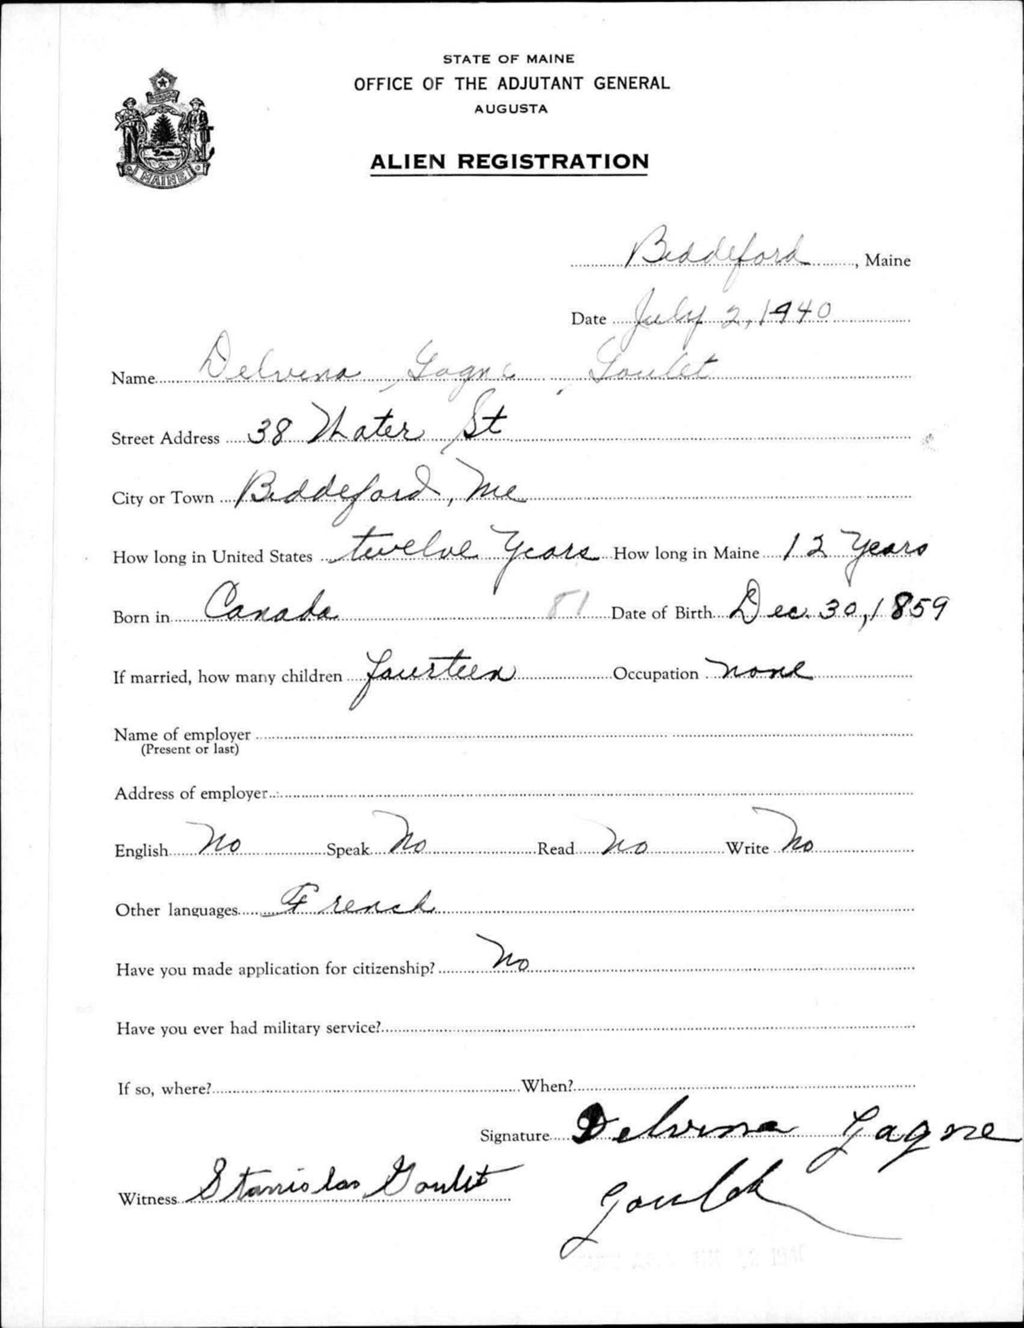 STATE OF MAINE
OFFICE OF THE ADJUTANT GENERAL
AUGUSTA
ALIEN REGISTRATION
MAINE
Biddeford, Maine
Date July 2, 1940
Name Delvina Gagne Goulet
Street Address 38 Water St
City or Town Biddeford, Me
How long in United States twelve Years How long in Maine 12 Years
Born in Canada 81 Date of Birth Dec. 30, 1859
If married, how many children fourteen Occupation none
Name of employer
(Present or last)
Address of employer
English No Speak No Read No Write No
Other languages French
Have you made application for citizenship? No
Have you ever had military service?
If so, where? When?
Signature Delvina Gagne
Goulet
Witness Stanislas Goulet